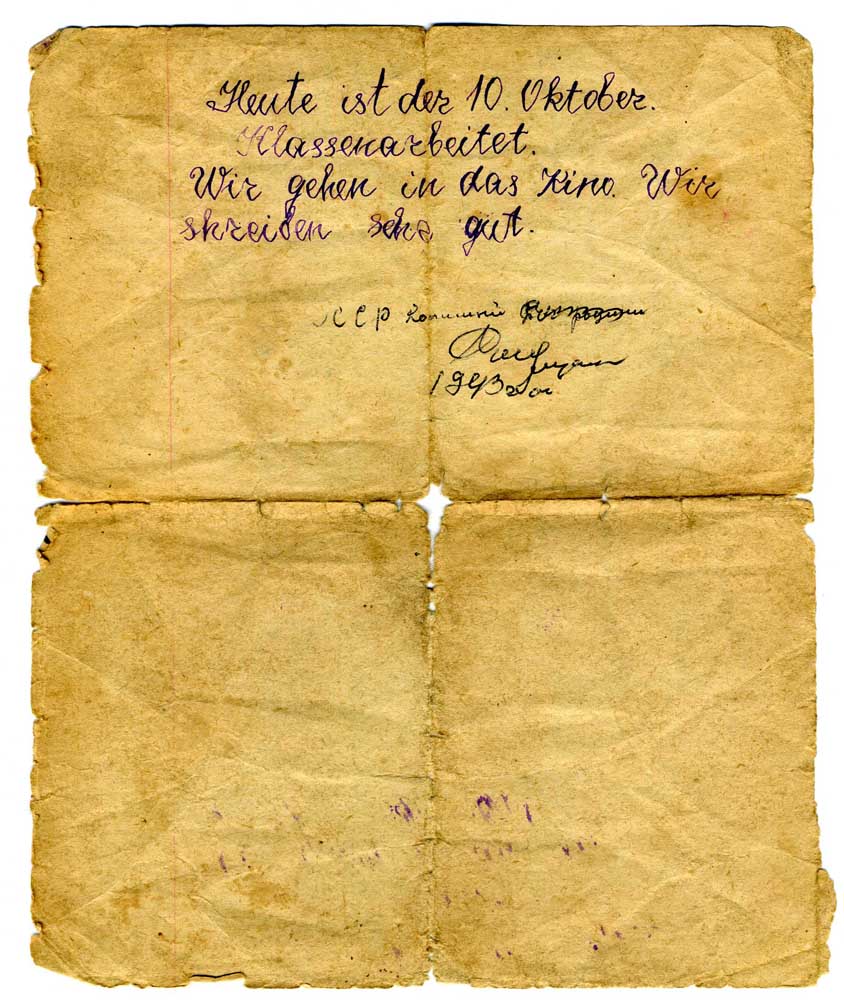 Heute ist der 10. Oktober.
Klassenarbeitet.
Wir gehen in das Kino. Wir
skreiben sehr gut.
ССР
1943